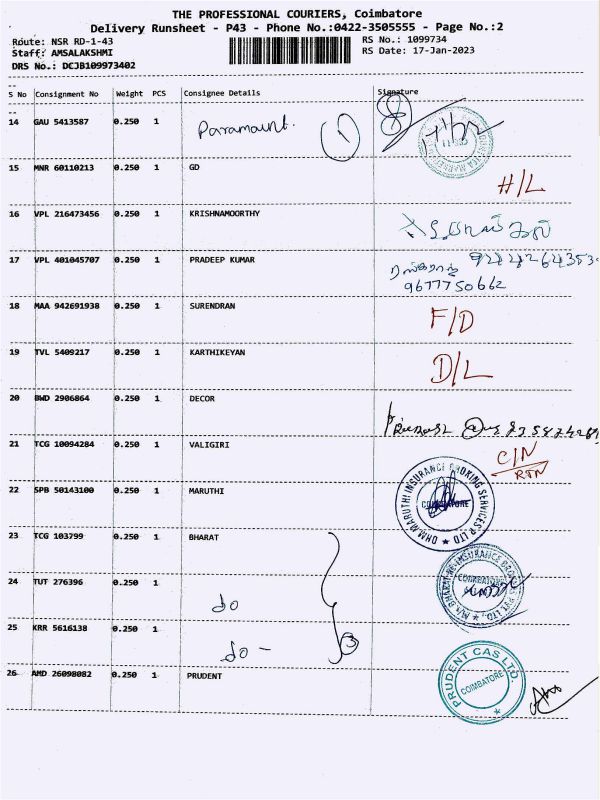 THE PROFESSIONAL COURIERS, Coimbatore
Delivery Runsheet - P43 - Phone No.:0422-3505555 - Page No.:2
Route: NSR RD-1-43
RS No.: 1099734
Staff: AMSALAKSHMI
RS Date: 17-Jan-2023
DRS No.: DCJB109973402
S No Consignment No Weight PCS Consignee Details Signature
14 GAU 5413587 0.250 1 Paramount. 1 8
15 MNR 60110213 0.250 1 GD H/L
16 VPL 216473456 0.250 1 KRISHNAMOORTHY
17 VPL 401045707 0.250 1 PRADEEP KUMAR
9677750662
18 MAA 942691938 0.250 1 SURENDRAN F/D
19 TVL 5409217 0.250 1 KARTHIKEYAN D/L
20 BWD 2906864 0.250 1 DECOR
21 TCG 10094284 0.250 1 VALIGIRI C/N
RTN
22 SPB 50143100 0.250 1 MARUTHI DHM MARUTHI INSURANCE BROKING SERVICES P LTD COIMBATORE
23 TCG 103799 0.250 1 BHARAT
24 TUT 276396 1 do COIMBATORE
25 KRR 5616138 0.250 1 do - 3
26 AMD 26098082 0.250 1 PRUDENT PRUDENT CAS LTD. COIMBATORE